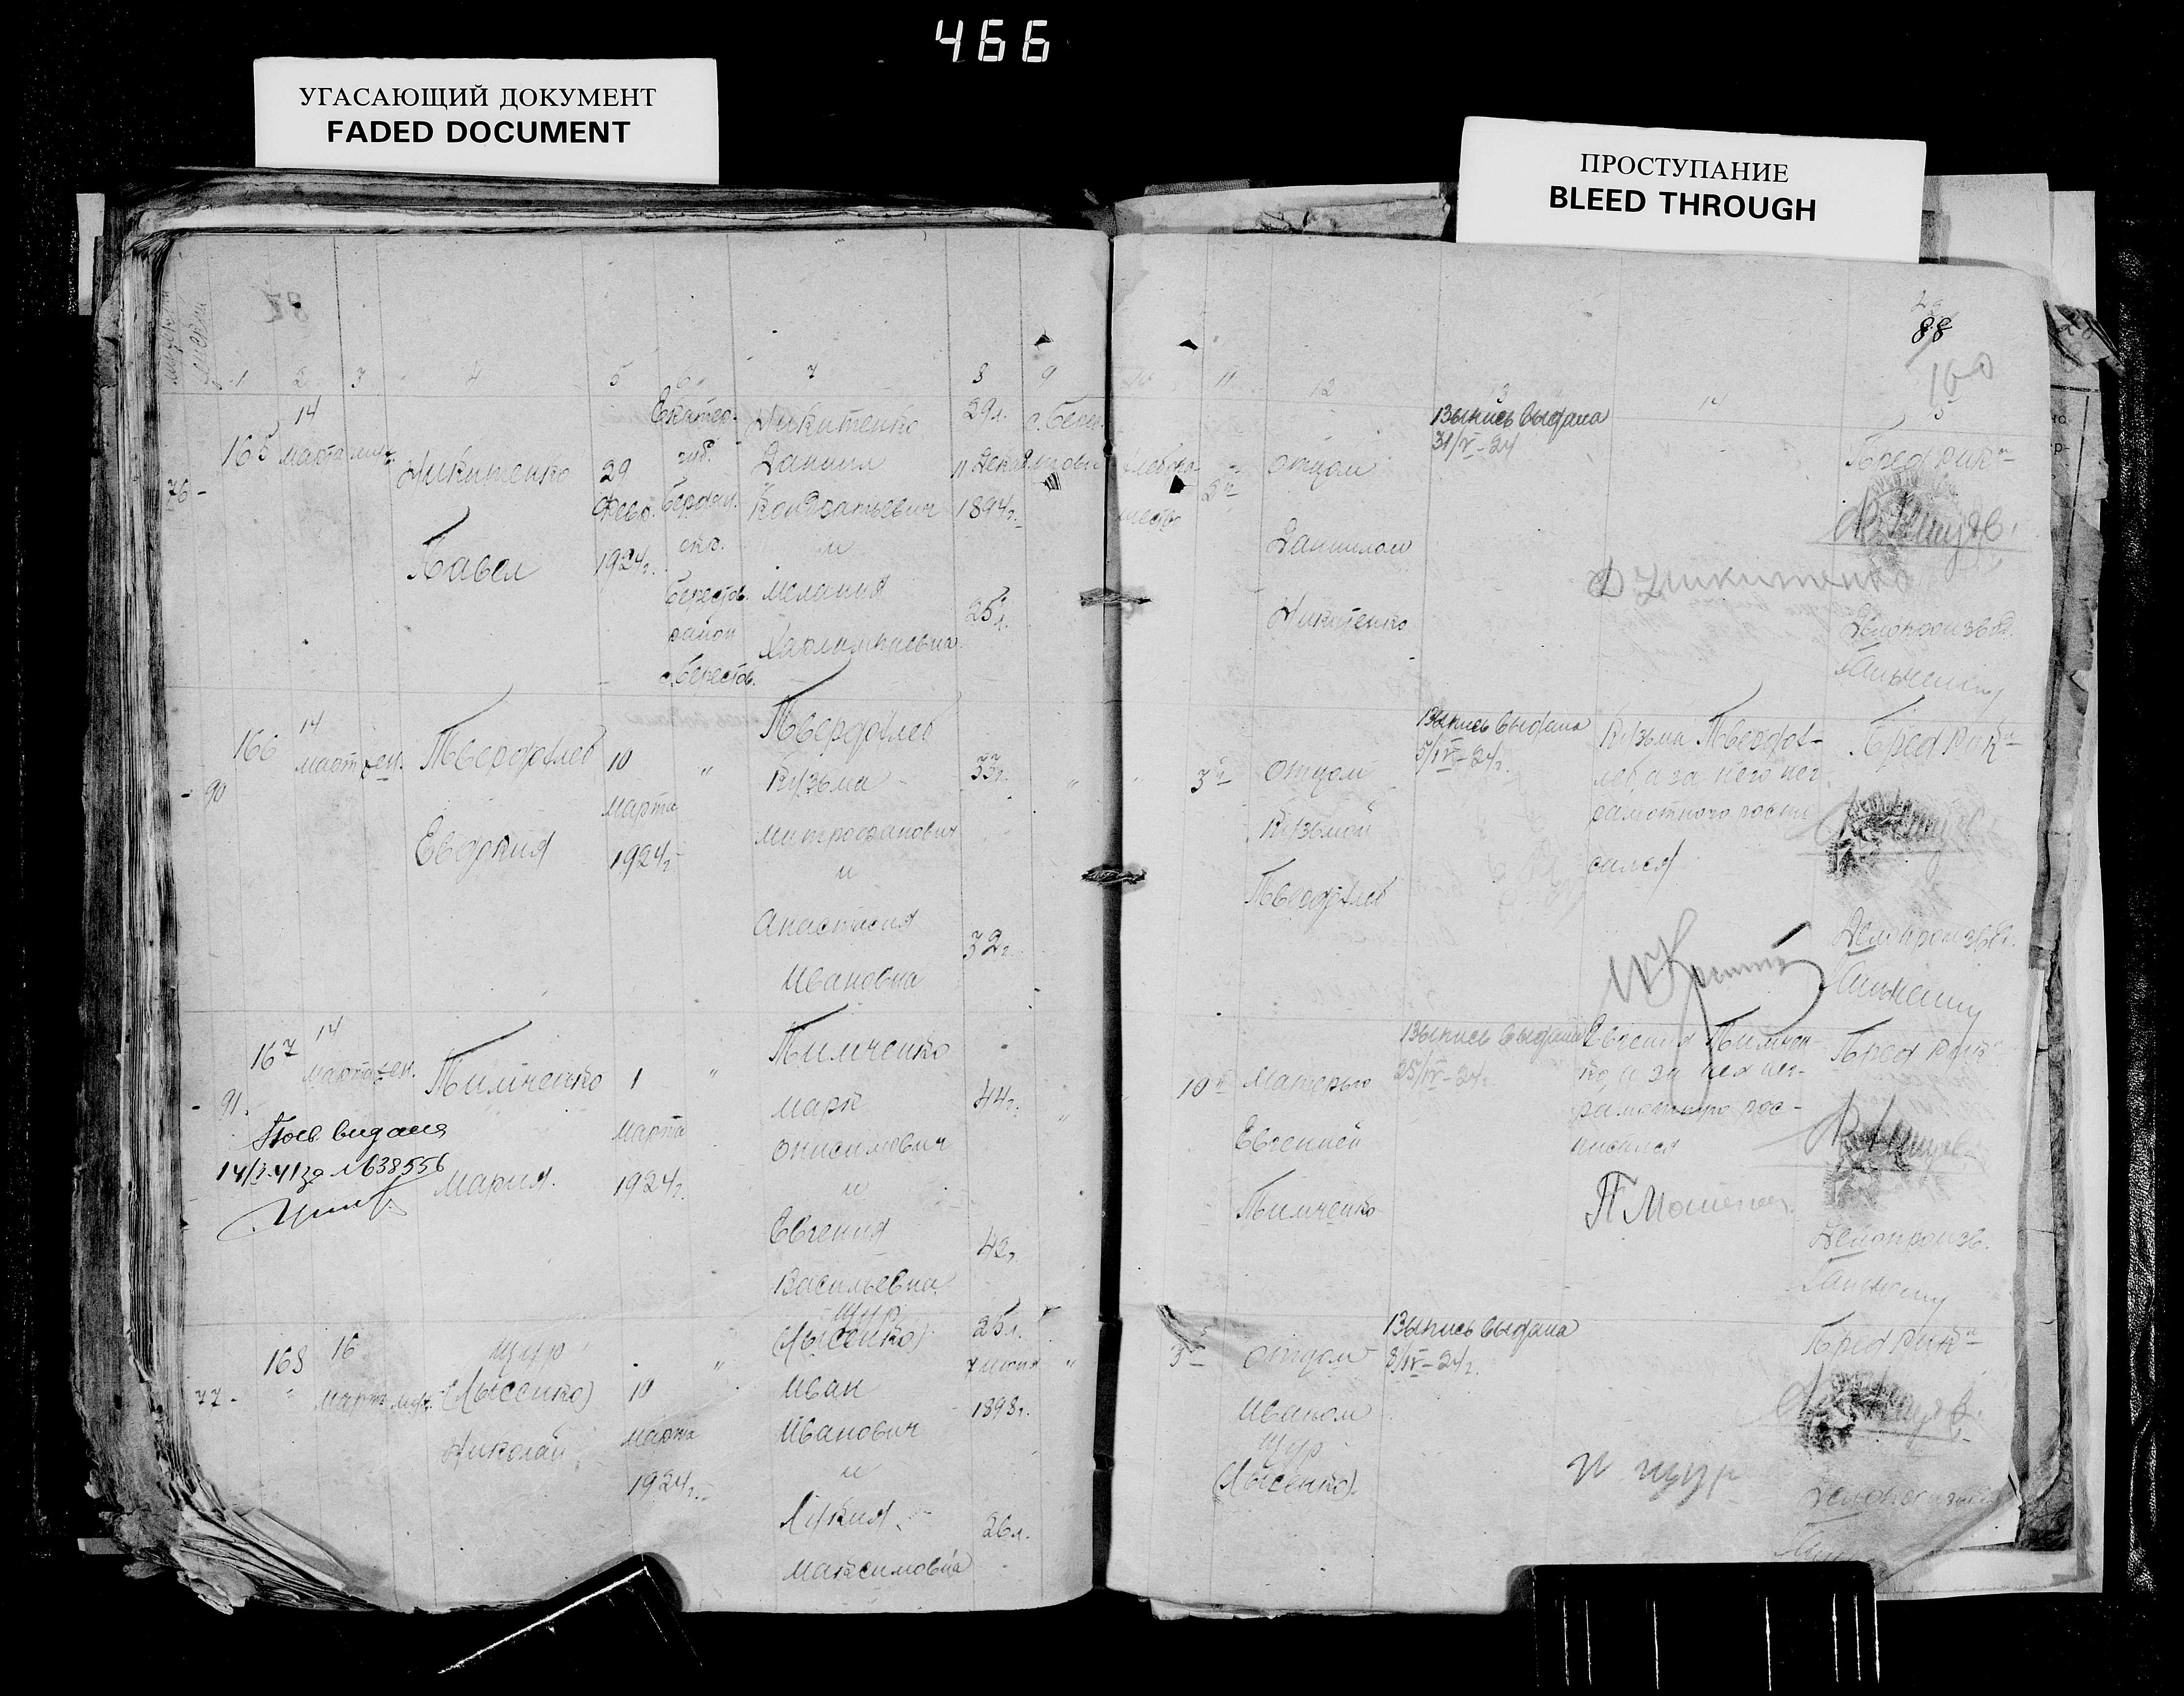 466
УГАСАЮЩИЙ ДОКУМЕНТ
FADED DOCUMENT
ПРОСТУПАНИЕ
BLEED THROUGH
88
160
1 2 3 4 5 6 7 8 9
11 12 13 14
76 -
165
14
марта
Никитенко
Павел
29
Февр.
1924г.
Екатер.
губ.
Бердян.
окр.
Берестов.
район
с. Берестов.
Никитенко
Даниил
Кондратьевич
и
Мелания
Харлампиевна
29л.
11 Декаб
1894г.
25л.
отцом
Даниилом
Никитенко
Выпись выдана
31/V-24
Д Никитенко
Пред рик
Делопроизвод.
- 90
166
14
март
жен.
Твердохлеб
Евдокия
10
марта
1924г
"
Твердохлеб
Кузьма
Митрофанович
и
Анастасия
Ивановна
33г.
32г.
"
3й
отцом
Кузьмой
Твердохлеб
Выпись выдана
5/IV-24г.
Кузьма Твердох-
леб, а за него нег
рамотного распи
сался
Пред рик
Делопроизвод.
- 91.
167
14
марта
жен.
Тимченко
Мария.
1
марта
1924г.
"
Тимченко
Марк
Онисимович
и
Евгения
Васильевна
44г.
42г.
"
14/I-41 за №638556
10й
матерью
Евгенией
Тимченко
Выпись выдана
25/IV-24г.
Евгения Тимчен-
ко, а за нея нег-
рамотную рас-
писался
Пред рик
Делопроизв.
77 -
168
16
март
муж.
Щур
(Лысенко)
Николай
10
марта
1924г.
"
Щур
(Лысенко)
Иван
Иванович
и
Лукия
Максимовна
25л.
7 июня
1898г.
26л.
"
3й
отцом
Иваном
Щур
(Лысенко).
Выпись выдана
8/IV-24г.
И Щур
Пред рик